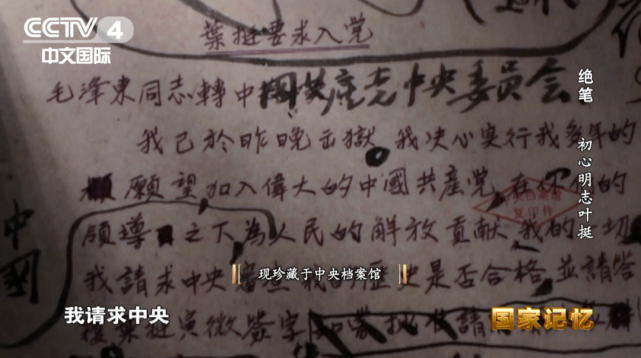 CCTV 4
中文国际
葉挺要求入党
毛澤東同志轉中國共產党中央委員会
我已於昨晚出獄,我决心实行我多年的
願望加入偉大的中國共産党,在你们的
領導之下為人民的解放貢献我的一切
我請求中央審查我的歷史是否合格並請答
中國
绝笔 初心明志叶挺
中央档案馆
复印件
现珍藏于中央档案馆
我请求中央
国家记忆